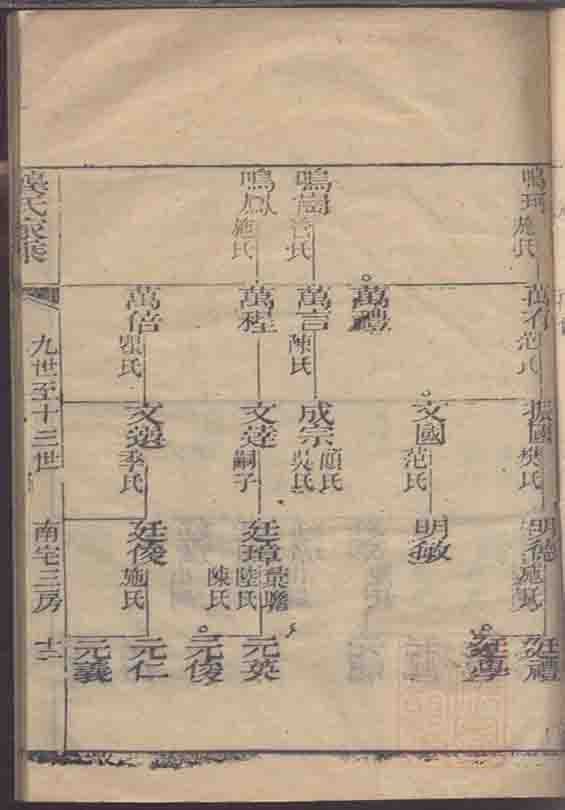 鳴珂施氏
鳴岡
鳴鳳施氏
萬有范氏
萬禮
萬言陳氏
萬程
萬倍張氏
振國樊氏
文國范氏
成宗顧氏吳氏
文達嗣子
文選李氏
明德施氏
明敏
廷璋陸氏陳氏
廷俊施氏
廷禮
廷學
元英
元俊
元仁
元義
氏家乘
九世至十三世
南宅三房
十二